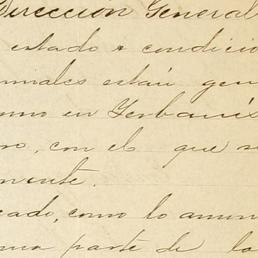 Direccion General
estado o condicio
males estan gen
omo en Yerbanis
ro, con el que se
mente.
cado, como lo anun
una parte de la